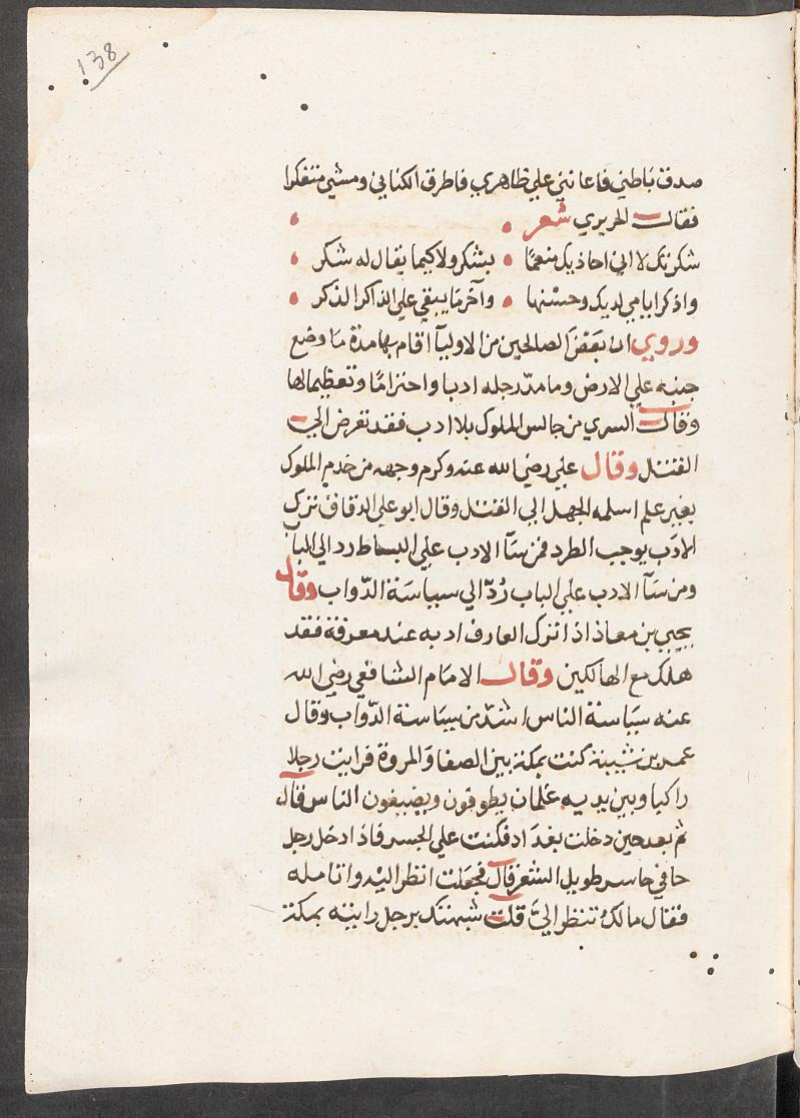 138
صدق باطني فاعانني علي ظاهري فاطرق الكناني ومشي متفكرا
فقالت الحريري شعر
شكرتك لا اني اجازيك منعما • بشكر ولا كيما يقال له شكر •
واذكر ايامي لديك وحسنها • وآخر ما يبقي علي الذاكر الذكر •
وروي ان بعض الصالحين من الاوليآ اقام بها مدة ما وضع
جنبه علي الارض وما مدّ رجله ادبا واحتراما وتعظيما لها
وقال السري من جالس الملوك بلا ادب فقد تعرض الي
القتل وقال علي رضي الله عنه وكرم وجهه من خدم الملوك
بغير علم اسلمه الجهل الي القتل وقال ابو علي الدقاق ترك
الادب يوجب الطرد فمن سآ الادب علي البساط رد الي الباب
ومن سآ الادب علي الباب رُدّ الي سياسة الدّواب وقال
يحيي بن معاذ اذا ترك العارف ادبه عند معرفة فقد
هلك مع الهالكين وقال الامام الشافعي رضي الله
عنه سياسة الناس اشدّ من سياسة الدّواب وقال
عمر بن شيبة كنت بمكة بين الصفا والمروة فرايت رجلا
راكبا وبين يديه غلمان يطوفون ويضيفون الناس قال
ثم بعد حين دخلت بغداد فكنت علي الجسر فاذا دخل رجل
حافي حاسر طويل الشعر قال فجعلت انظر اليه واتامله
فقال مالك تنظر اليَّ قلت شبهتك برجل رايته بمكة